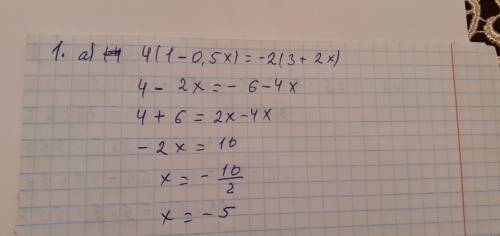 1. а) 4(1-0,5x)=-2(3+2x)
4-2x=-6-4x
4+6=2x-4x
-2x=10
x=-10/2
x=-5